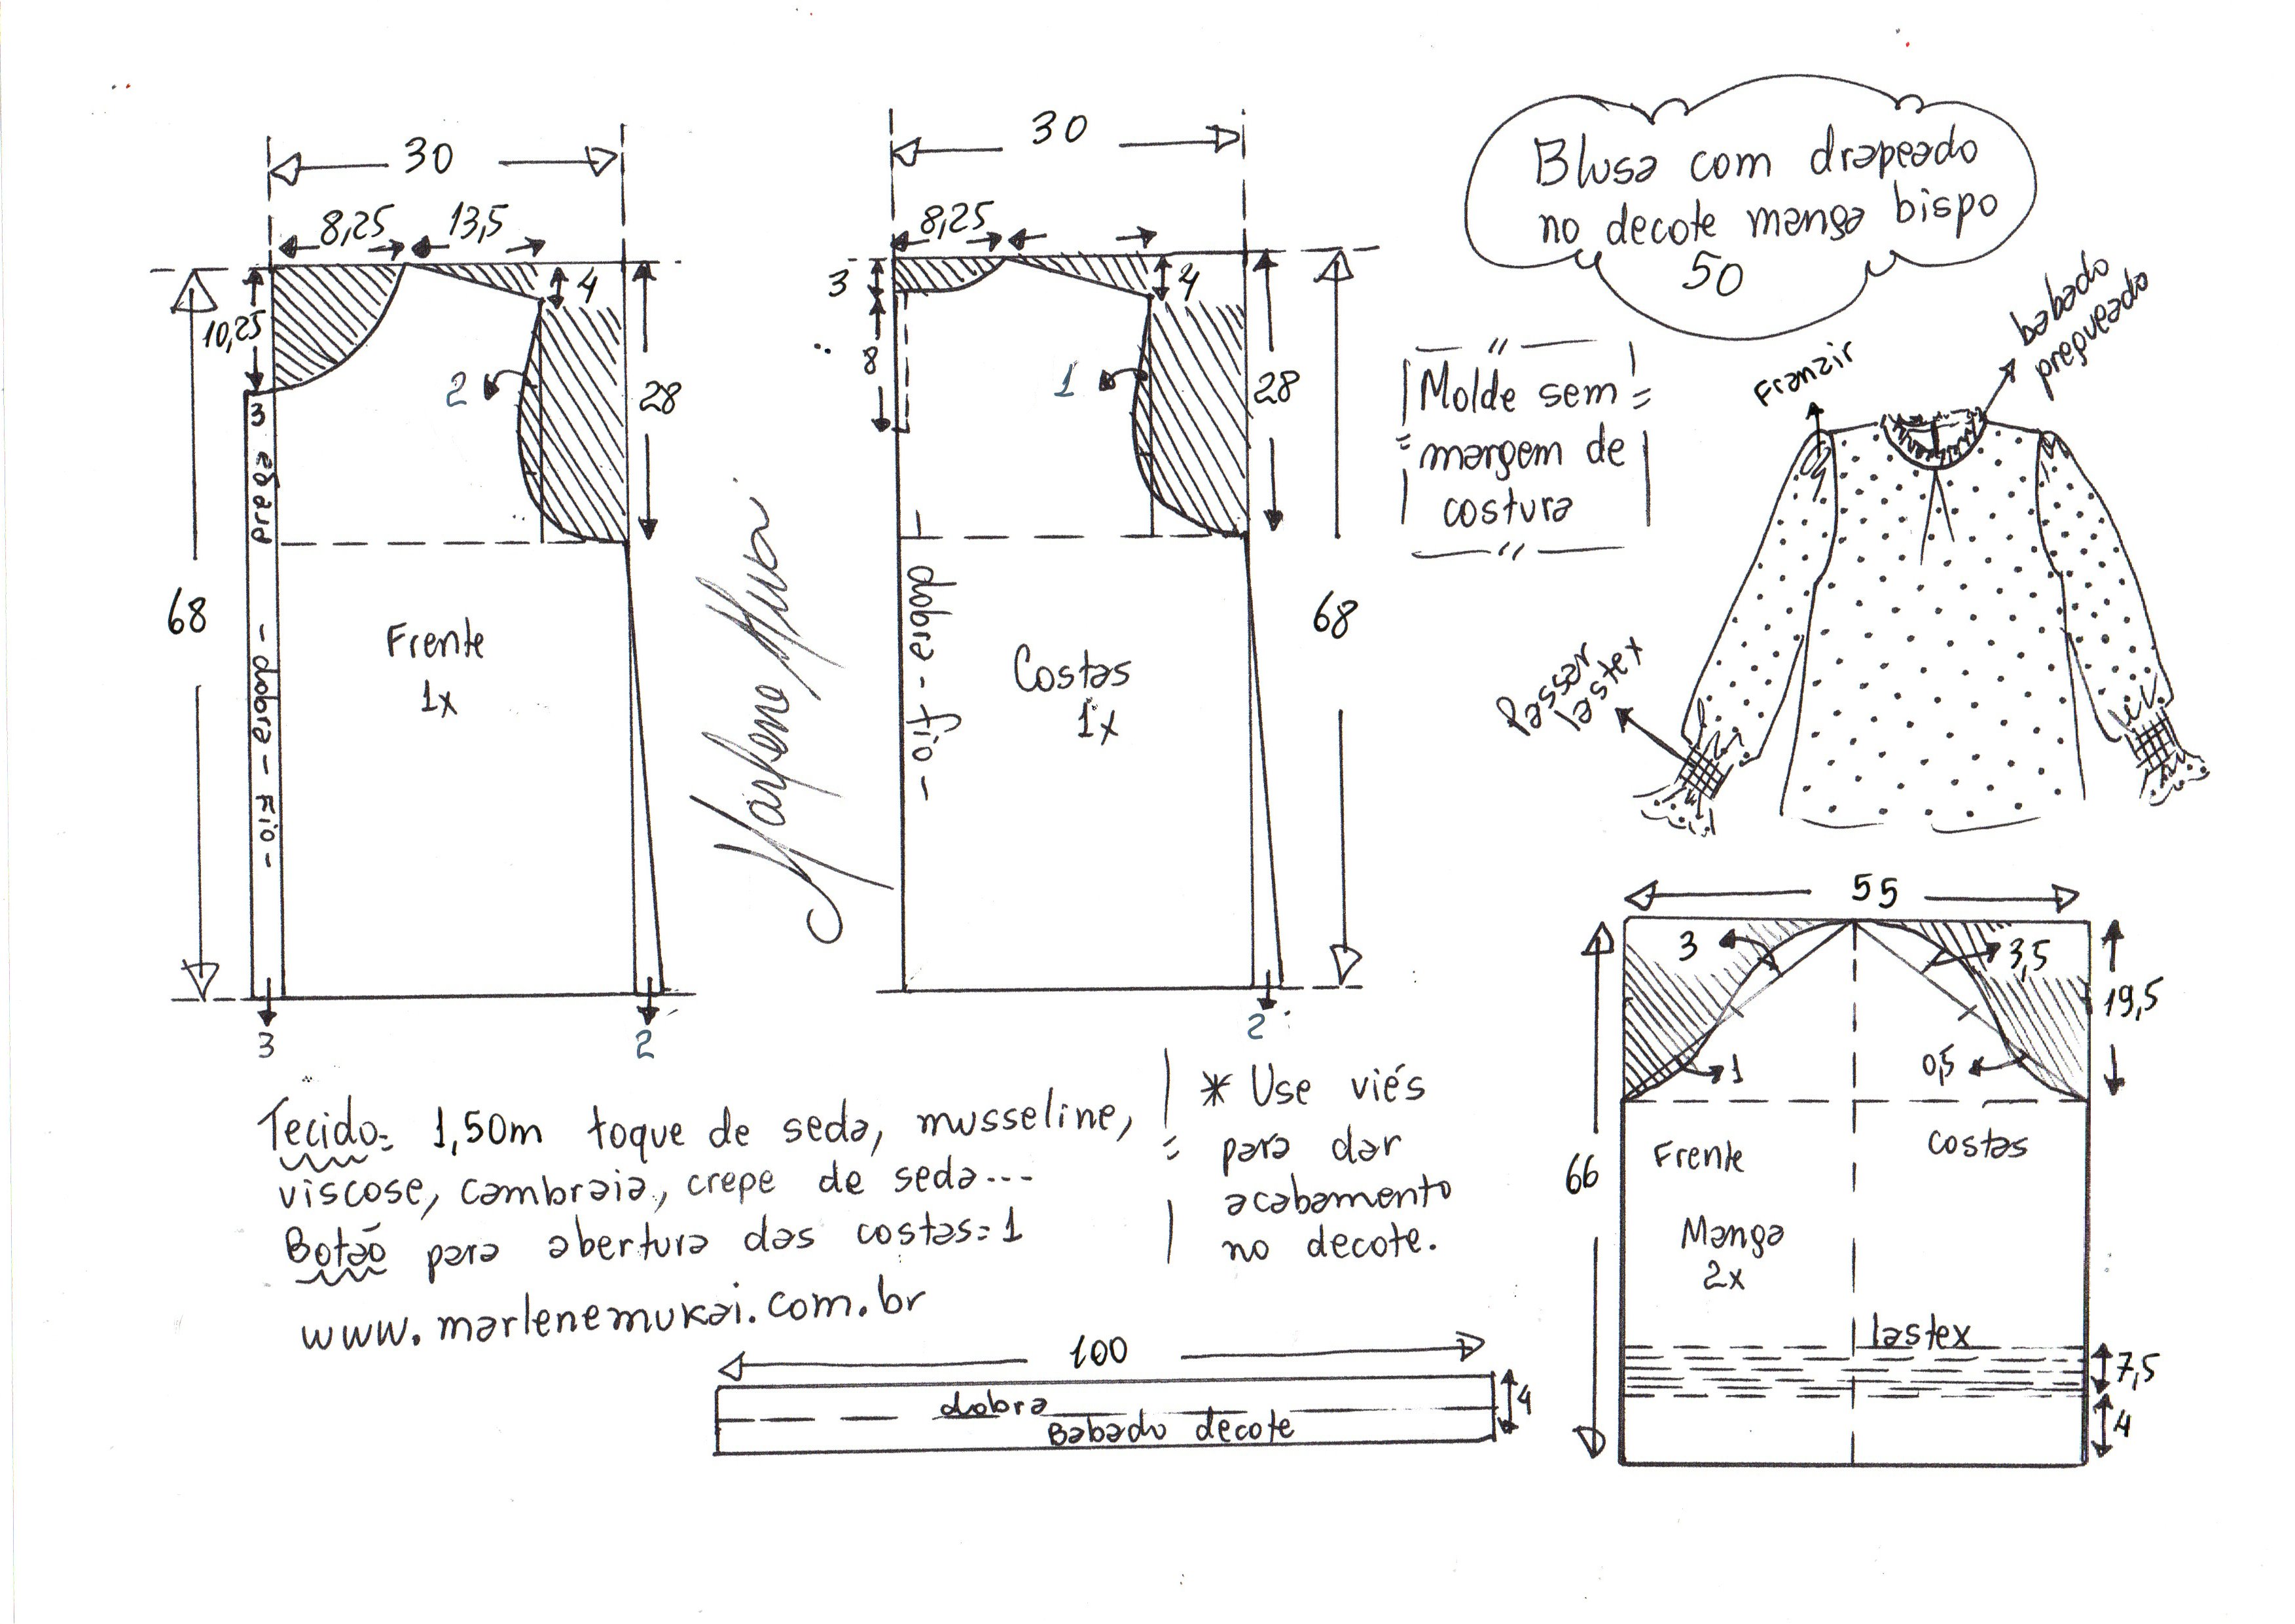 30
8,25
13,5
4
10,25
2
28
3
prega - dobra - Fio -
68
Frente
1x
3
2
30
8,25
3
4
8
1
28
dobra - fio -
68
Costas
1x
2
Blusa com drapeado
no decote manga bispo
50
Molde sem
margem de
costura
Franzir
babado
pregueado
Passar
lastex
55
3
3,5
19,5
1
0,5
Frente
Costas
66
Manga
2x
lastex
7,5
4
Tecido= 1,50m toque de seda, musseline,
viscose, cambraia, crepe de seda...
Botão para abertura das costas=1
www.marlenemukai.com.br
* Use viés
para dar
acabamento
no decote.
100
dobra
Babado decote
4